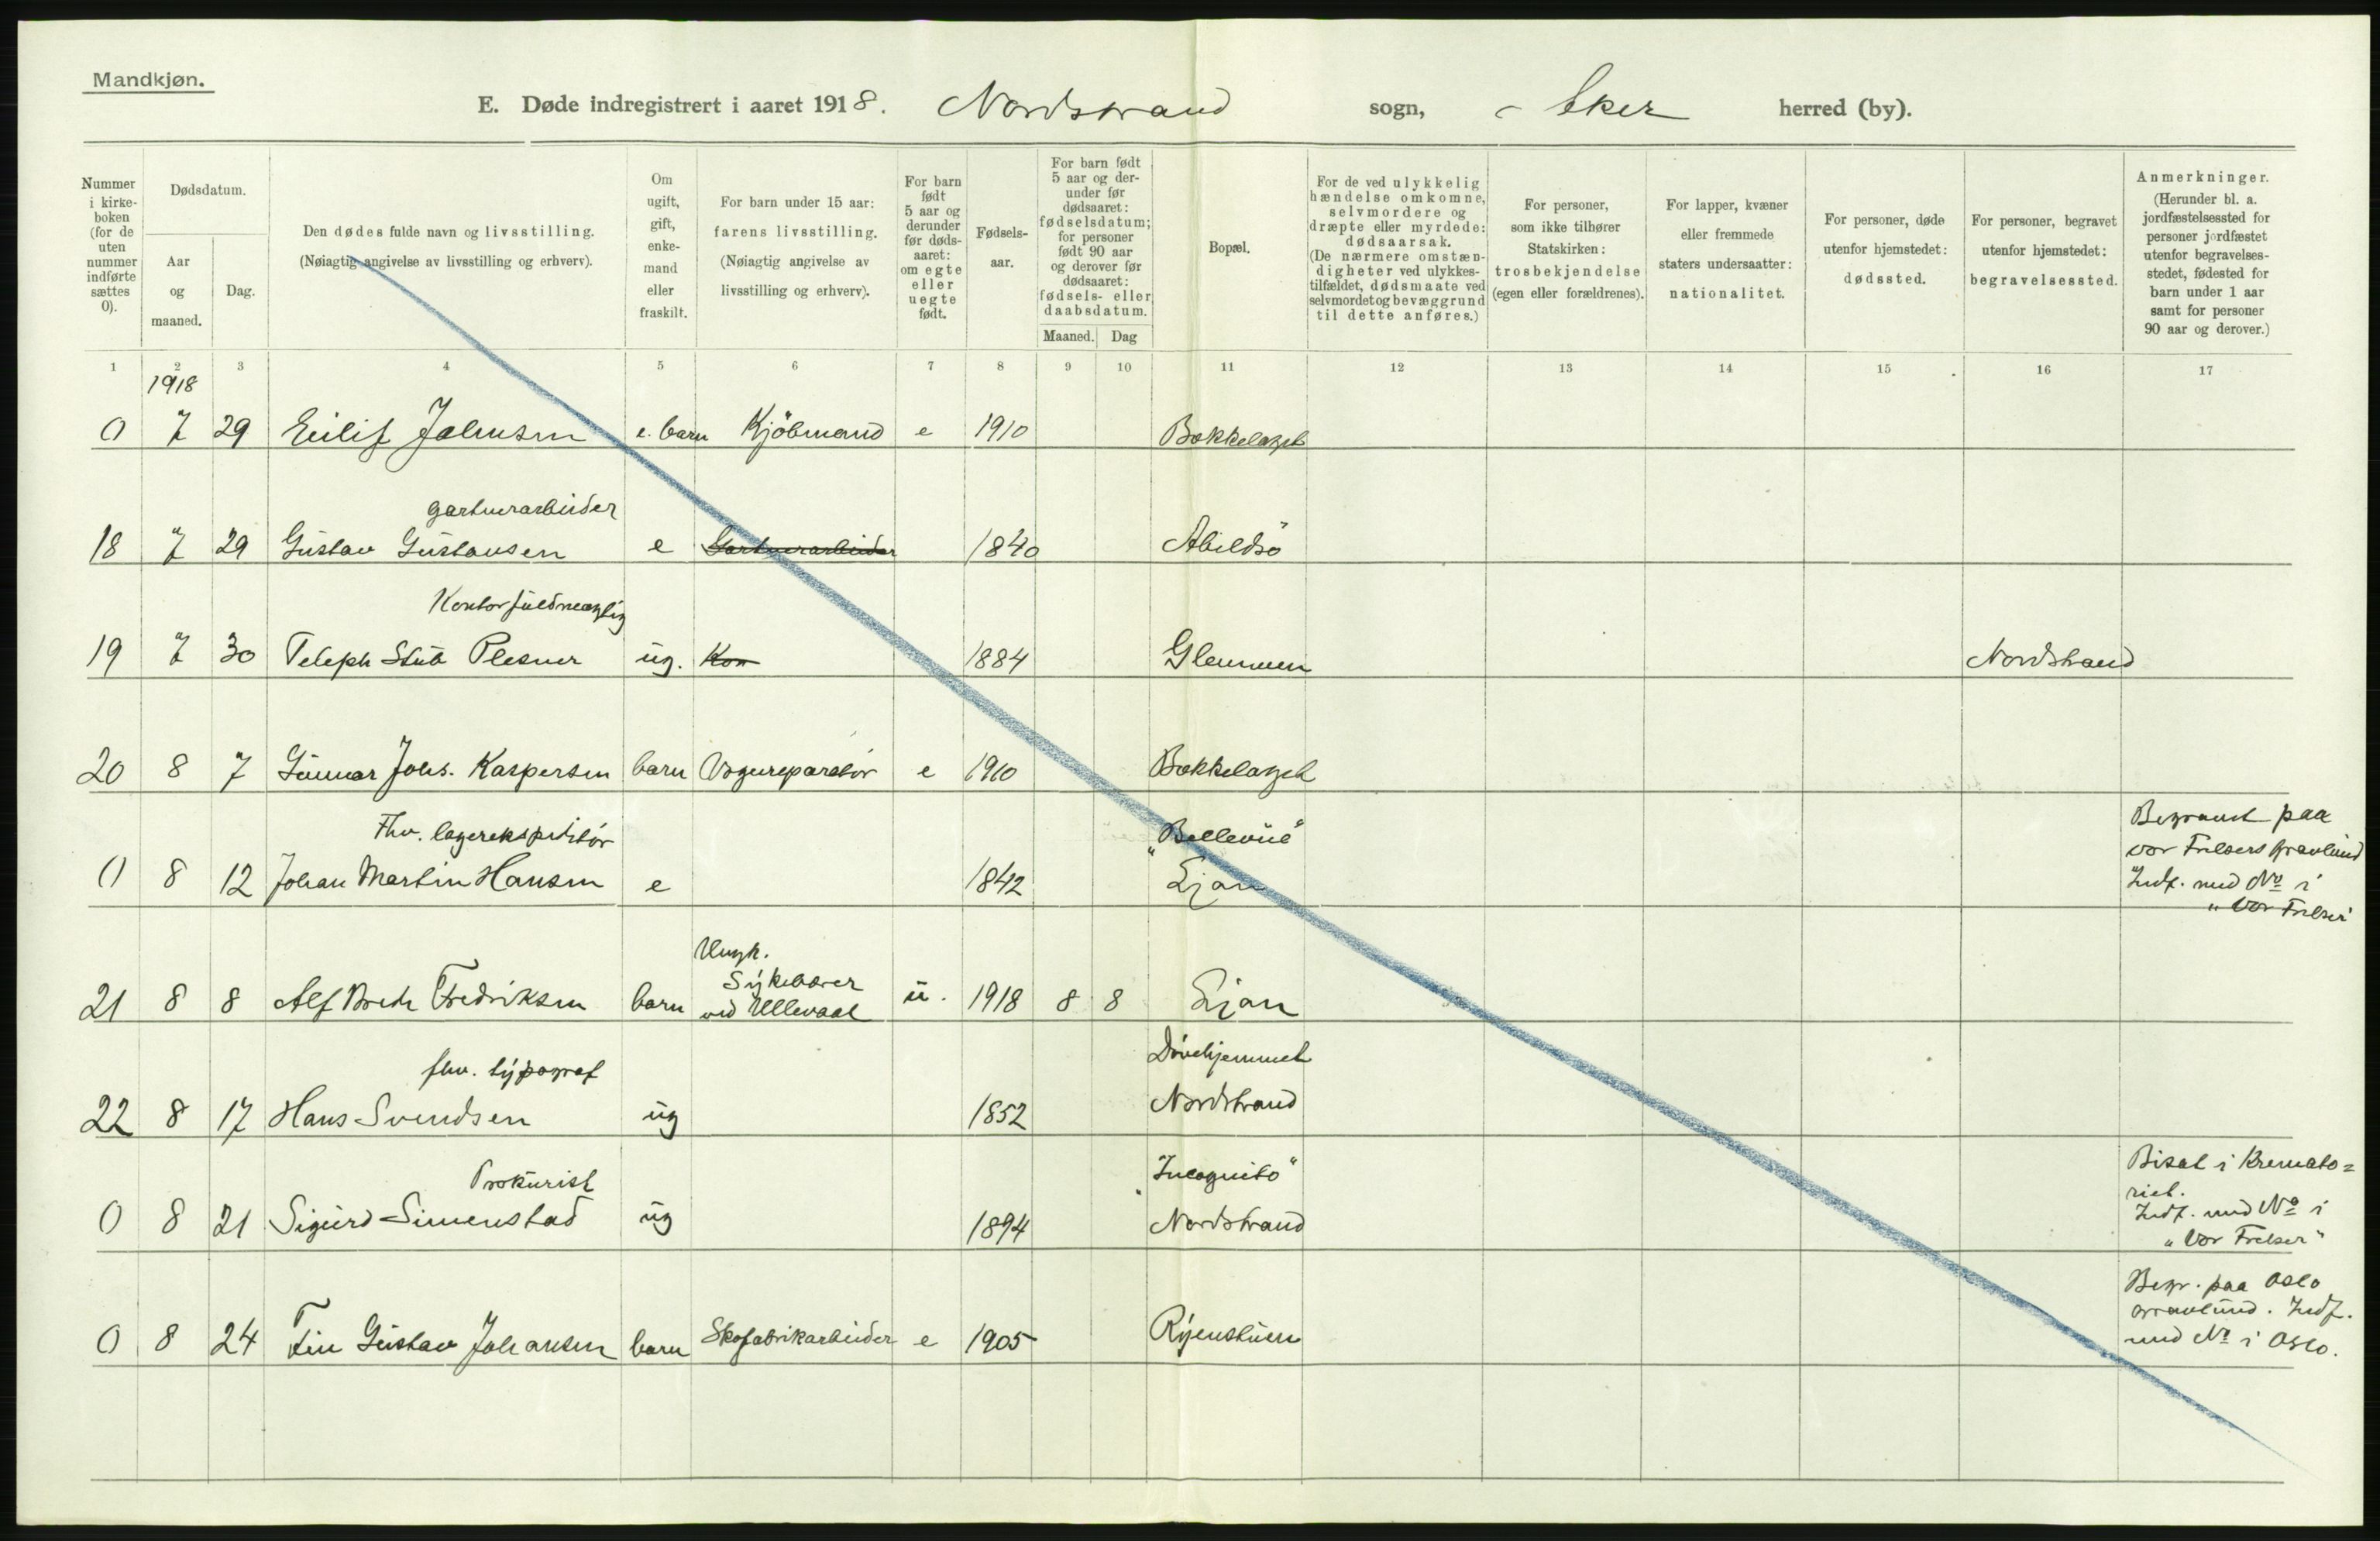 Mandkjøn.
E. Døde indregistrert i aaret 1918. Nordstrand sogn, Aker herred (by).
Nummer i kirke- boken (for de uten nummer indførte sættes 0).
Dødsdatum.
Aar og maaned.
Dag.
Den dødes fulde navn og livsstilling.
(Nøiagtig angivelse av livsstilling og erhverv).
Om ugift, gift, enke- mand eller fraskilt.
For barn under 15 aar: farens livsstilling.
(Nøiagtig angivelse av livsstilling og erhverv).
For barn født 5 aar og derunder før døds- aaret: om egte eller uegte født.
Fødsels- aar.
For barn født 5 aar og der- under før dødsaaret: fødselsdatum; for personer født 90 aar og derover før dødsaaret: fødsels- eller daabsdatum.
Maaned. Dag
Bopæl.
For de ved ulykkelig hændelse omkomne, selvmordere og dræpte eller myrdede: dødsaarsak.
(De nærmere omstæn- digheter ved ulykkes- tilfældet, dødsmaate ved selvmordet og bevæggrund til dette anføres.)
For personer, som ikke tilhører Statskirken: trosbekjendelse (egen eller forældrenes).
For lapper, kvæner eller fremmede staters undersaatter: nationalitet.
For personer, døde utenfor hjemstedet: dødssted.
For personer, begravet utenfor hjemstedet: begravelsessted.
Anmerkninger.
(Herunder bl. a. jordfæstelsessted for personer jordfæstet utenfor begravelses- stedet, fødested for barn under 1 aar samt for personer 90 aar og derover.)
1 2 3 4 5 6 7 8 9 10 11 12 13 14 15 16 17
1918
0 7 29 Eilif Johnsen e. barn Kjöbmand e 1910 Bækkelaget
gartnerarbeider
18 7 29 Gustav Gustavsen e Gartnerarbeider 1840 Abildsö
Kontorfuldmægtig
19 7 30 Teleph Stub Plesner ug. Kon 1884 Glemmen Nordstrand
20 8 7 Gunnar Johs. Kaspersen barn Vognreparatör e 1910 Bækkelaget
Fhv. lagerekspeditör "Bellevue" Begravet paa
vor Frelsers gravlund
0 8 12 Johan Martin Hansen e 1842 Ljan Indf. med No i
"Vor Frelser"
Ungk.
Sykebærer
21 8 8 Alf Fredriksen barn ved Ullevaal u. 1918 8 8 Ljan
fhv. typograf Dövehjemmet
22 8 17 Hans Svendsen ug 1852 Nordstrand
Prokurist "Incognito" Bisat i Kremato=
riet.
0 8 21 Sigurd Simenstad ug 1894 Nordstrand Indf. med No i
"Vor Frelser"
Begr. paa Oslo
gravlund. Indf.
0 8 24 Fin Gustav Johansen barn Skofabrikarbeider e 1905 Ryenstuen med No i Oslo.